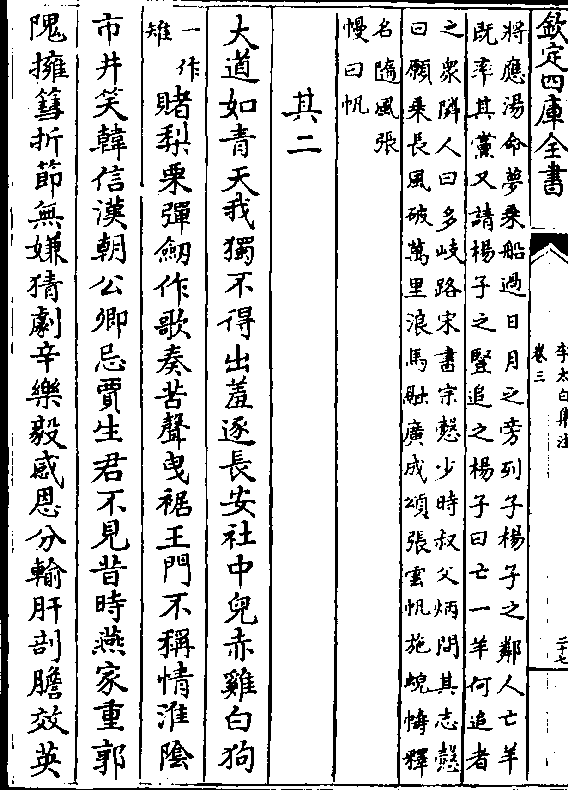 欽定四庫全書
李太白集注
卷三
二十七
將應湯命夢乗船過日月之旁列子楊子之鄰人亡羊
既率其黨又請楊子之豎追之楊子曰亡一羊何追者
之衆隣人曰多岐路宋書宗慤少時叔父炳問其志慤
曰願乗長風破萬里浪馬融廣成頌張雲帆施蜺幬釋
名隨風張
幔曰帆
其二
大道如青天我獨不得出羞逐長安社中兒赤雞白狗
一作
雉
賭梨栗彈劒作歌奏苦聲曵裾王門不稱情淮陰
市井笑韓信漢朝公卿忌賈生君不見昔時燕家重郭
隗擁篲折節無嫌猜劇辛樂毅感恩分輸肝剖膽效英